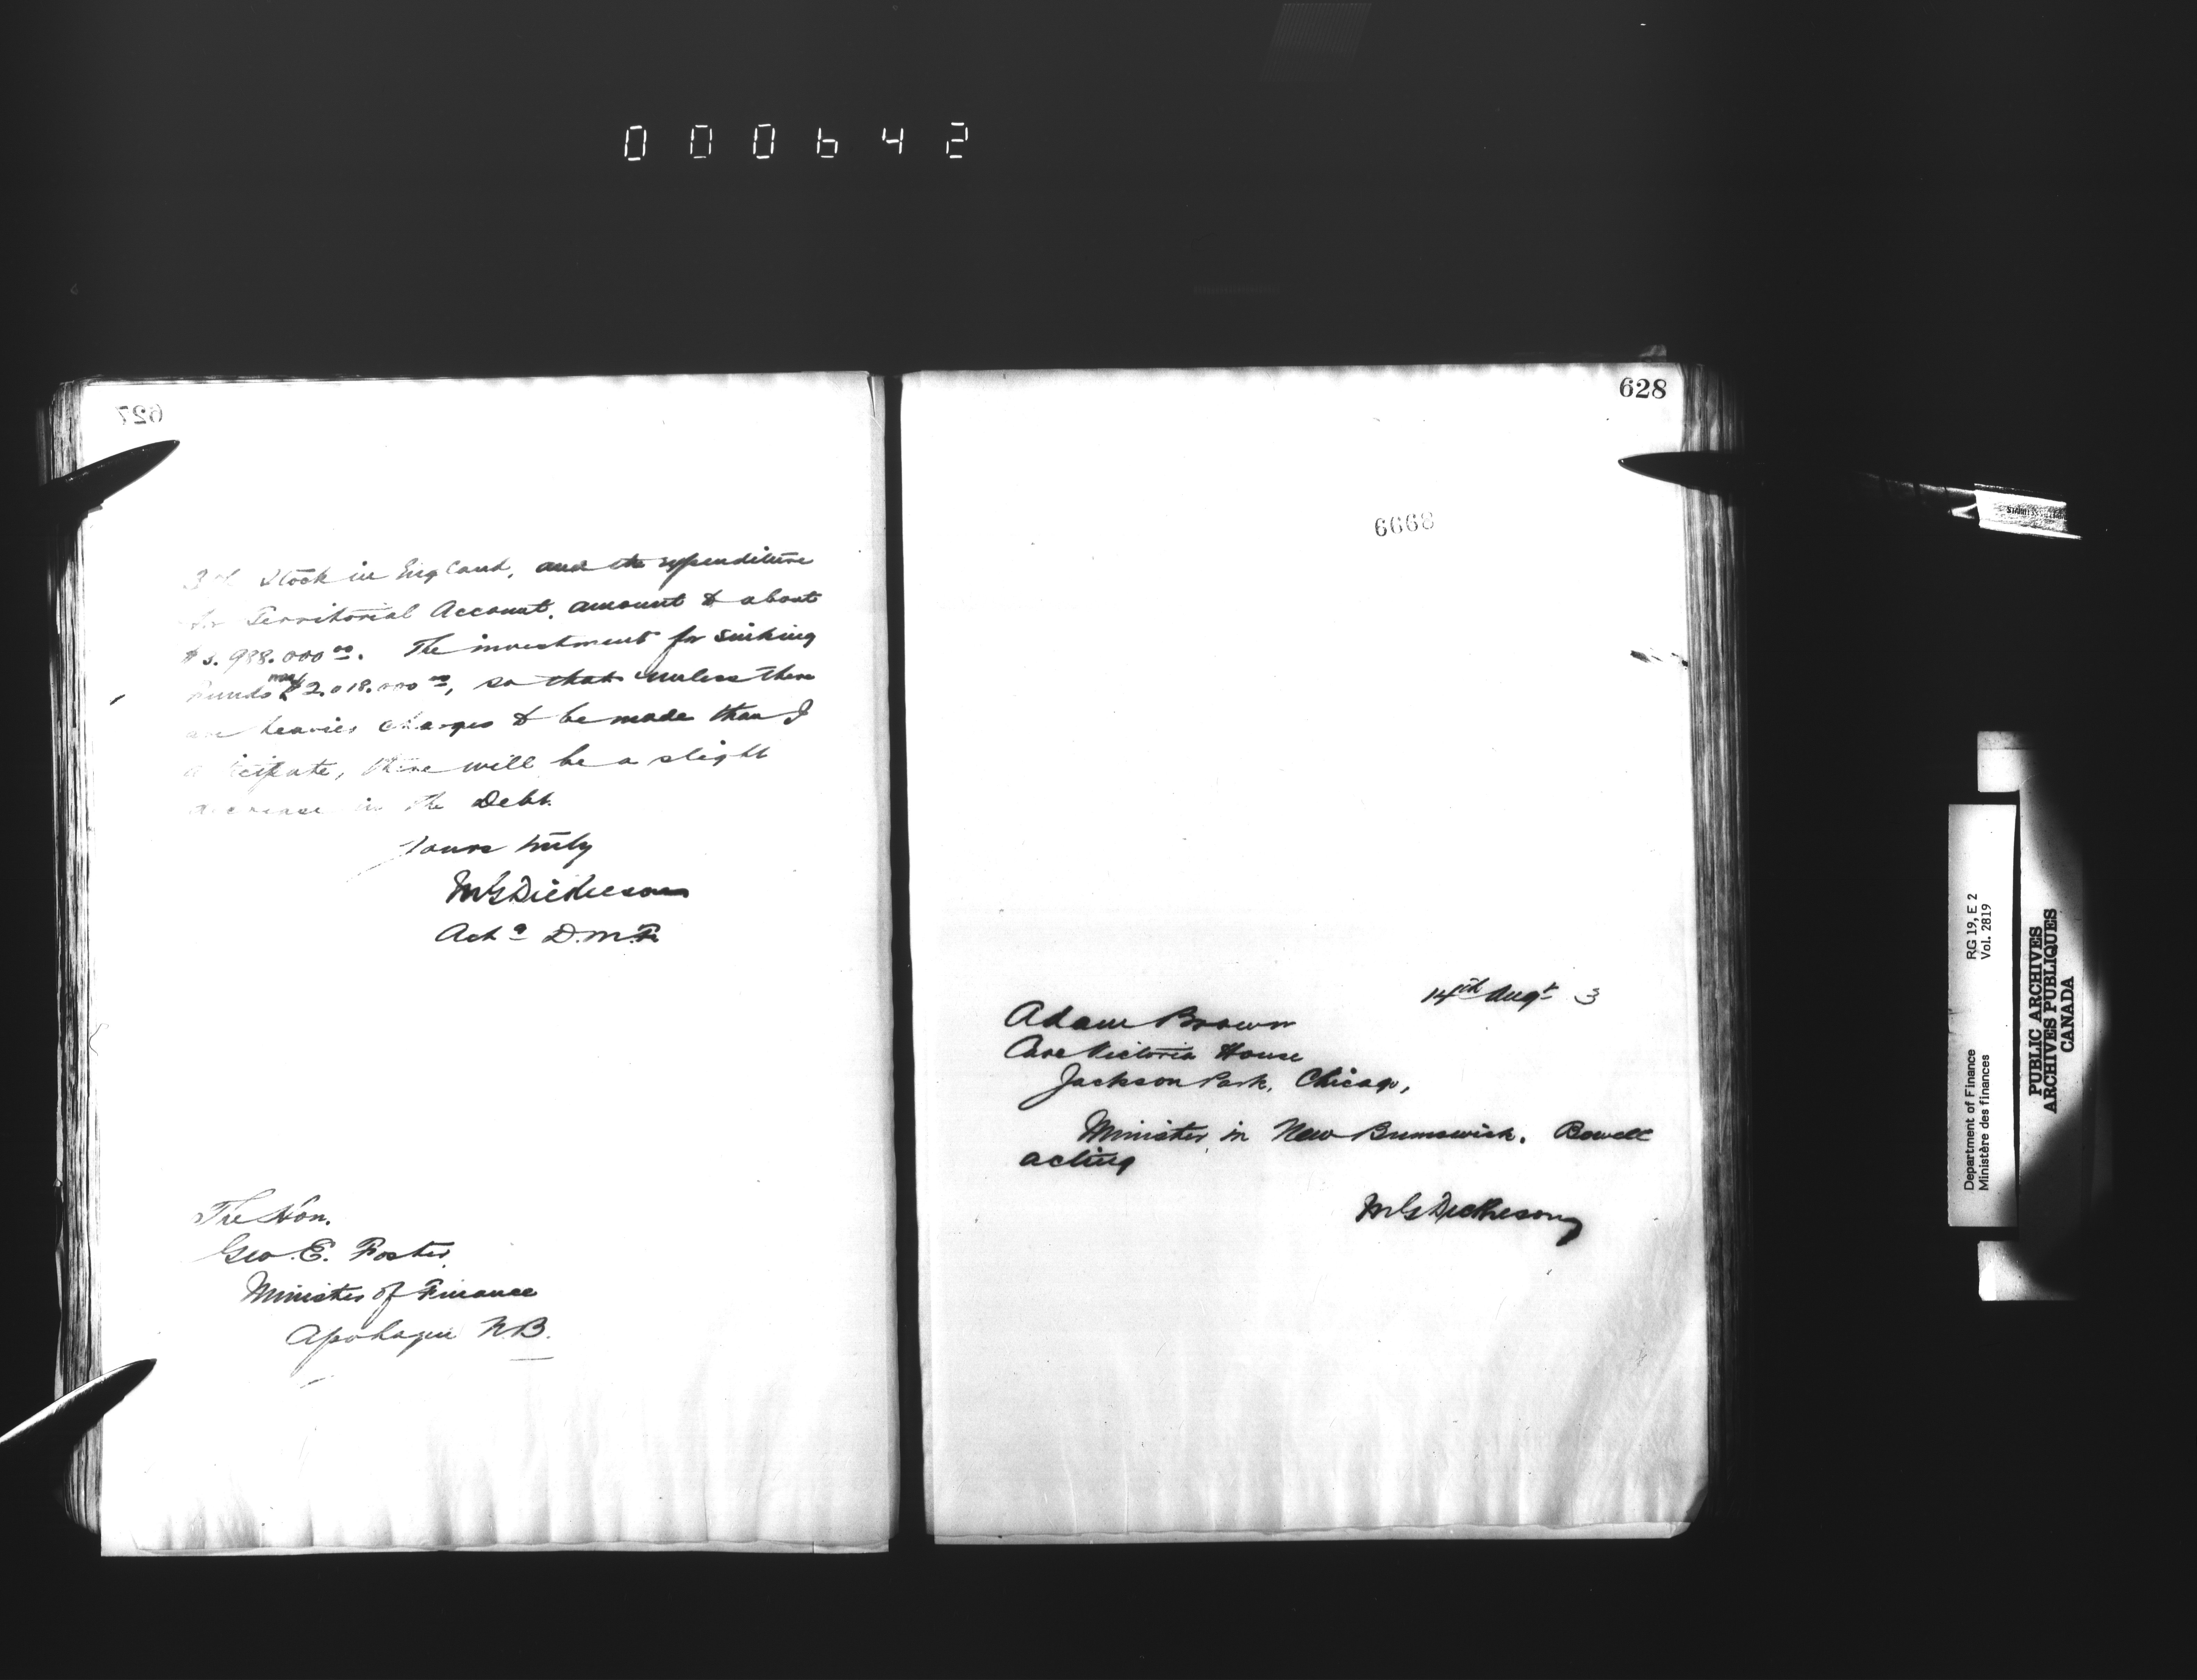 000642
627
3% Stock in England, and the expenditure
for Territorial Account, amount to about
$3.988.000 00. The investment for Sinking
Funds may $2.018.000 00, so that unless there
are heavier charges to be made than I
anticipate, there will be a slight
decrease in the Debt.
Yours truly
MGDickieson
Actg D.M.F.
The Hon.
Geo. E. Foster,
Minister of Finance
Apohaqui N.B.
628
6668
14th Augt 3
Adam Brown
Care Victoria House
Jackson Park, Chicago,
Minister in New Brunswick. Bowell
acting
MGDickieson
Department of Finance
Ministère des finances
RG 19, E 2
Vol. 2819
PUBLIC ARCHIVES
ARCHIVES PUBLIQUES
CANADA